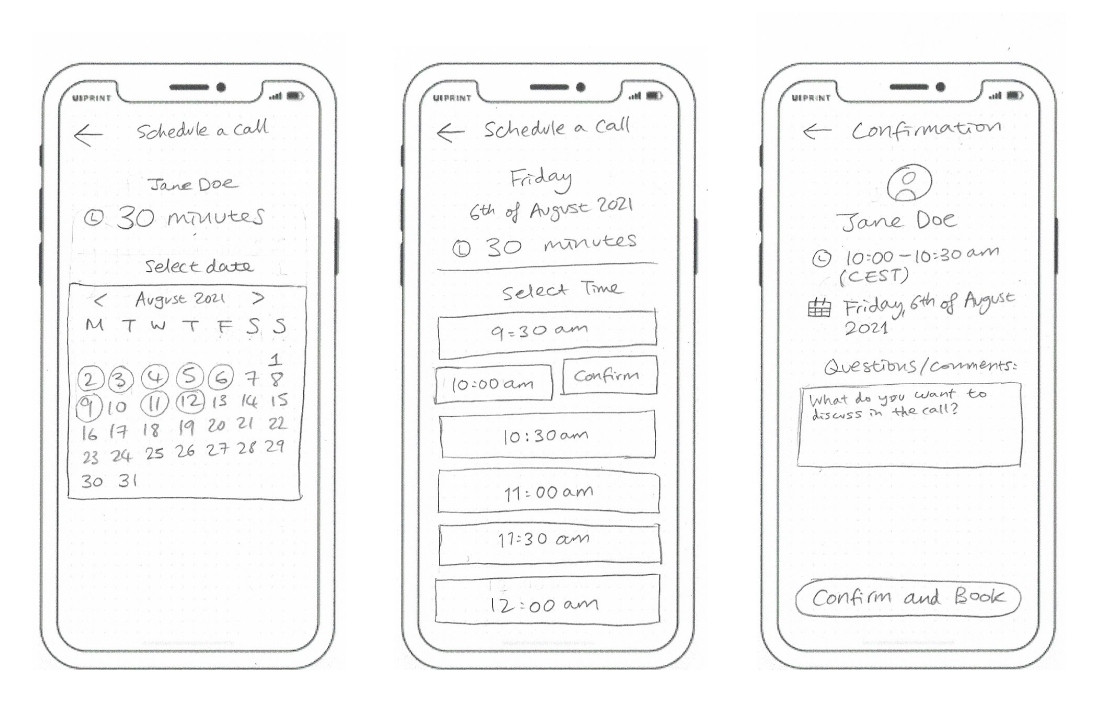 UIPRINT
Schedule a call
Jane Doe
30 minutes
Select date
< August 2021 >
M T W T F S S
1
2 3 4 5 6 7 8
9 10 11 12 13 14 15
16 17 18 19 20 21 22
23 24 25 26 27 28 29
30 31
UIPRINT
Schedule a call
Friday
6th of August 2021
30 minutes
Select Time
9:30 am
10:00 am Confirm
10:30 am
11:00 am
11:30 am
12:00 am
UIPRINT
Confirmation
Jane Doe
10:00 - 10:30 am
(CEST)
Friday, 6th of August
2021
Questions/comments:
What do you want to
discuss in the call?
Confirm and Book